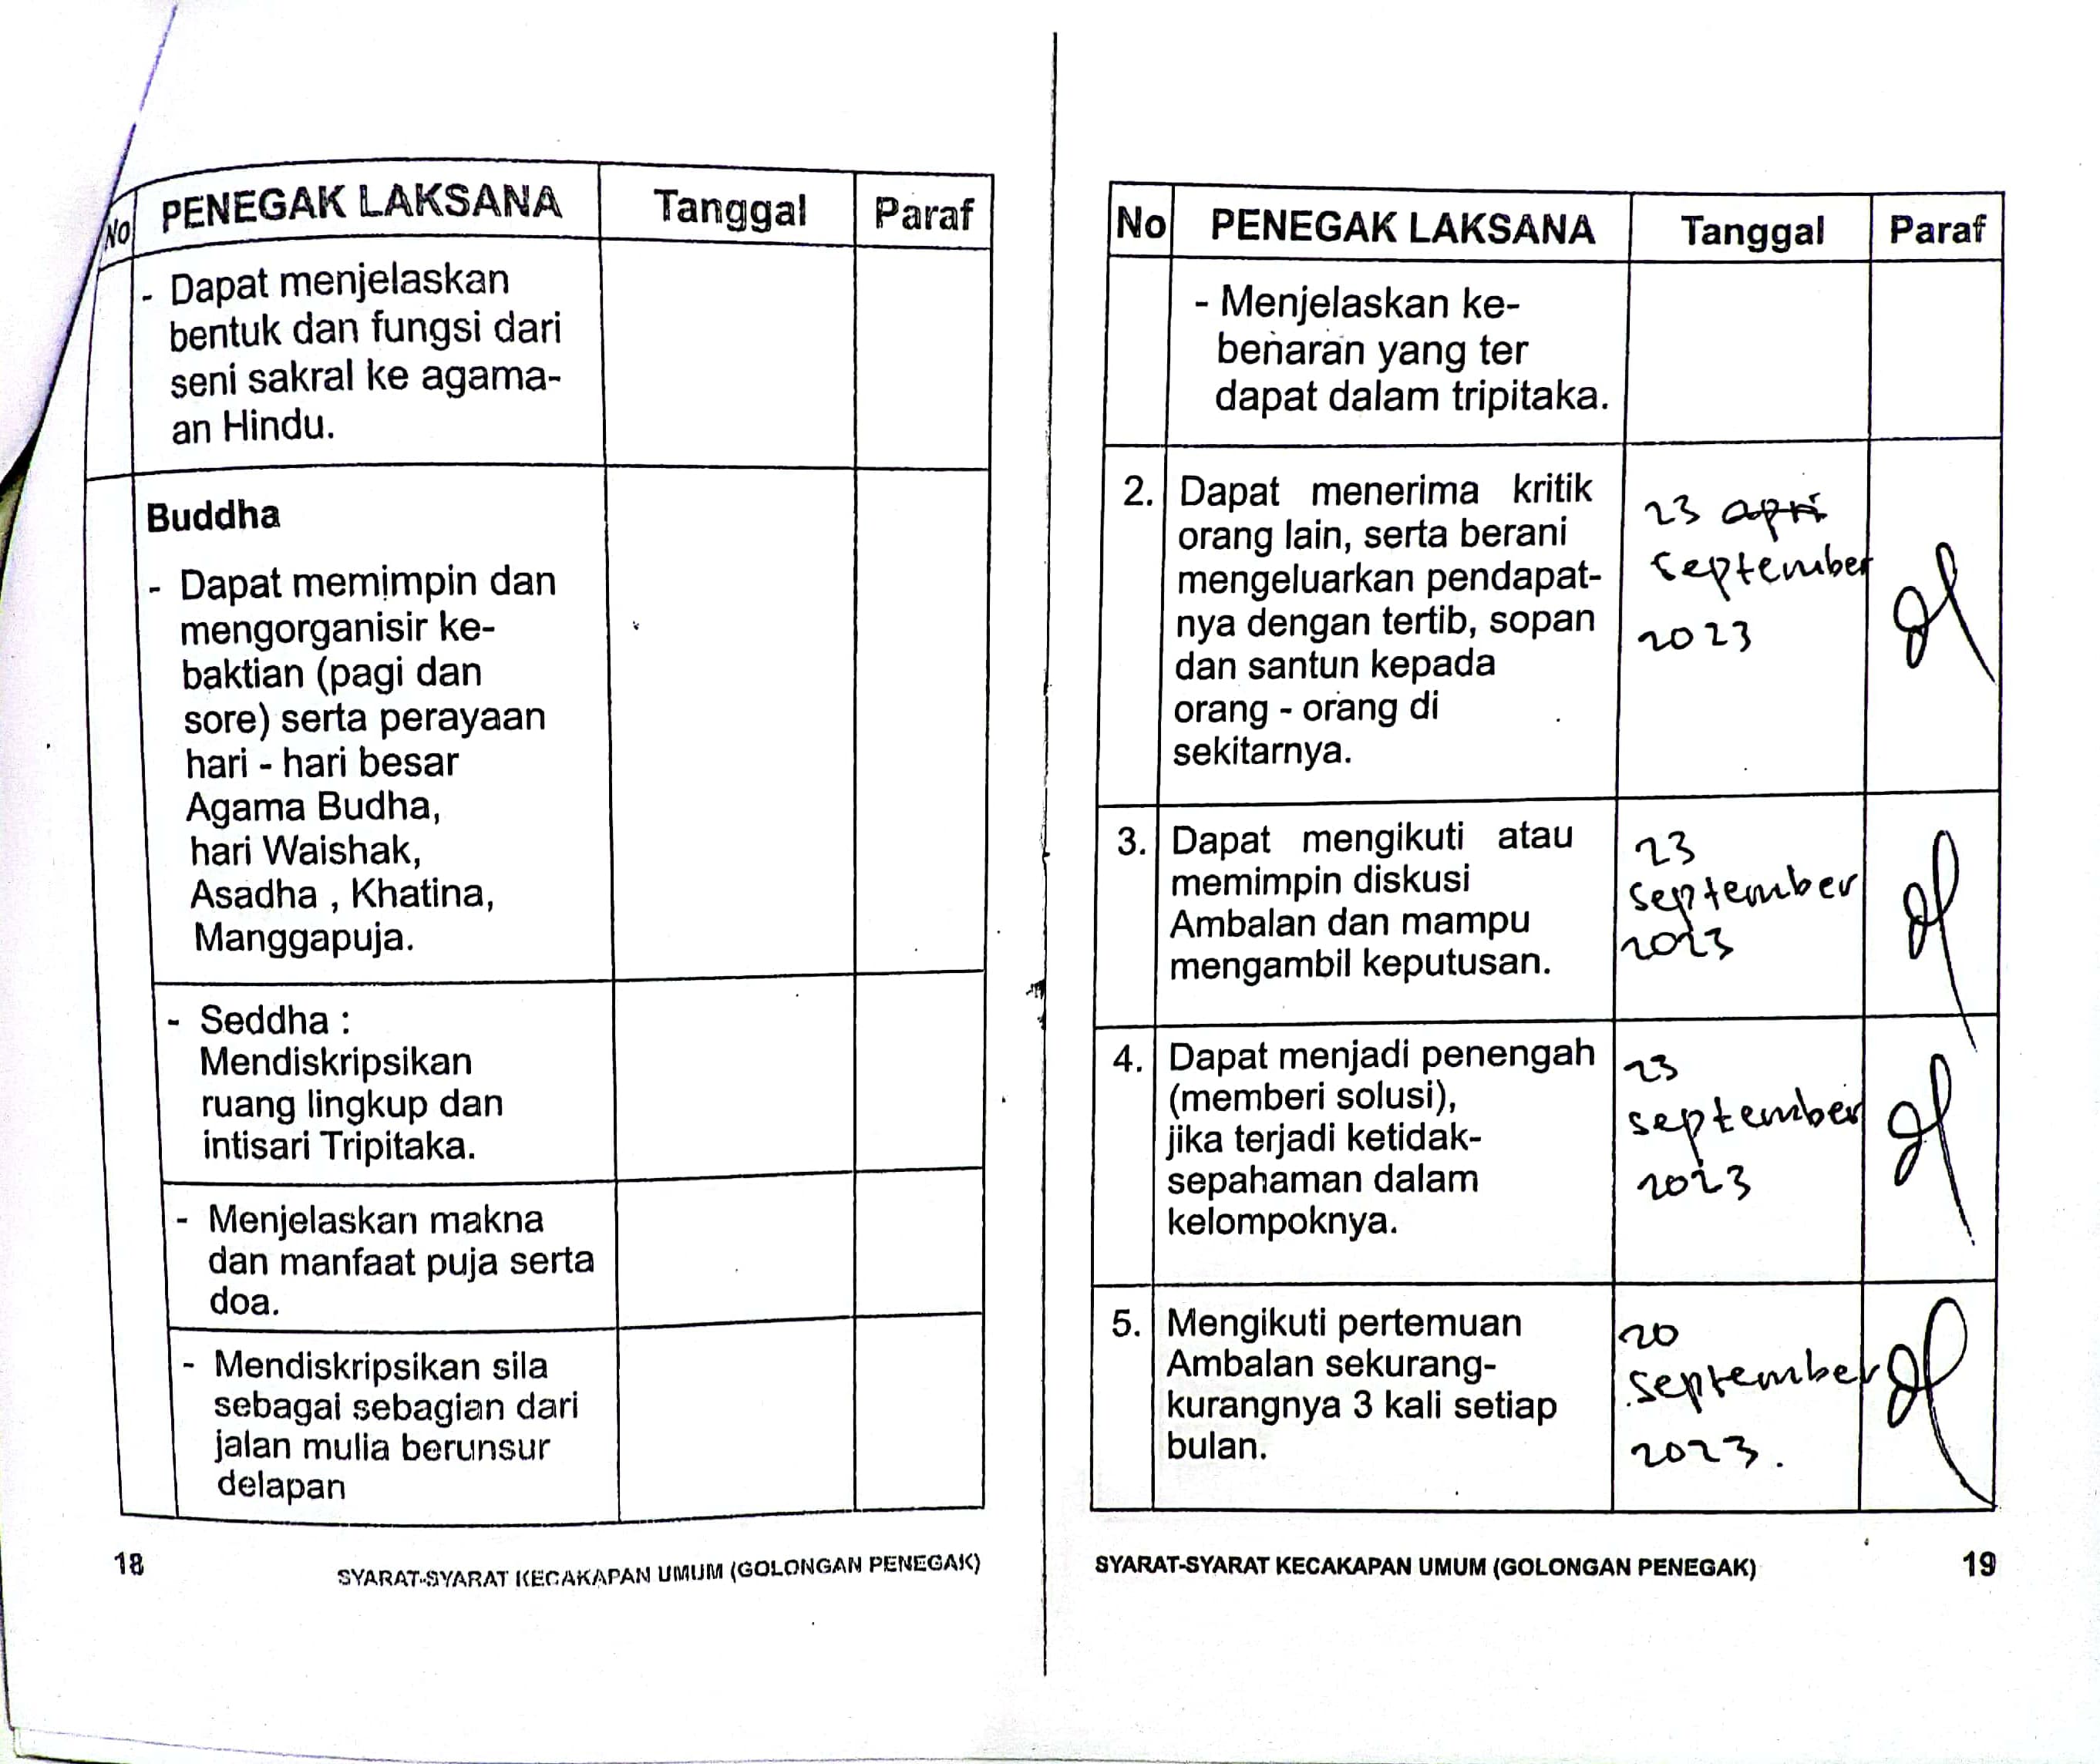 No PENEGAK LAKSANA Tanggal Paraf
- Dapat menjelaskan
bentuk dan fungsi dari
seni sakral ke agama-
an Hindu.
Buddha
- Dapat memimpin dan
mengorganisir ke-
baktian (pagi dan
sore) serta perayaan
hari - hari besar
Agama Budha,
hari Waishak,
Asadha , Khatina,
Manggapuja.
- Seddha :
Mendiskripsikan
ruang lingkup dan
intisari Tripitaka.
- Menjelaskan makna
dan manfaat puja serta
doa.
- Mendiskripsikan sila
sebagai sebagian dari
jalan mulia berunsur
delapan
18
SYARAT-SYARAT KECAKAPAN UMUM (GOLONGAN PENEGAK)
No PENEGAK LAKSANA Tanggal Paraf
- Menjelaskan ke-
benaran yang ter
dapat dalam tripitaka.
2. Dapat menerima kritik
orang lain, serta berani
mengeluarkan pendapat-
nya dengan tertib, sopan
dan santun kepada
orang - orang di
sekitarnya.
23 apri
september
2023
3. Dapat mengikuti atau
memimpin diskusi
Ambalan dan mampu
mengambil keputusan.
23
september
2023
4. Dapat menjadi penengah
(memberi solusi),
jika terjadi ketidak-
sepahaman dalam
kelompoknya.
23
september
2023
5. Mengikuti pertemuan
Ambalan sekurang-
kurangnya 3 kali setiap
bulan.
20
september
2023.
SYARAT-SYARAT KECAKAPAN UMUM (GOLONGAN PENEGAK)
19